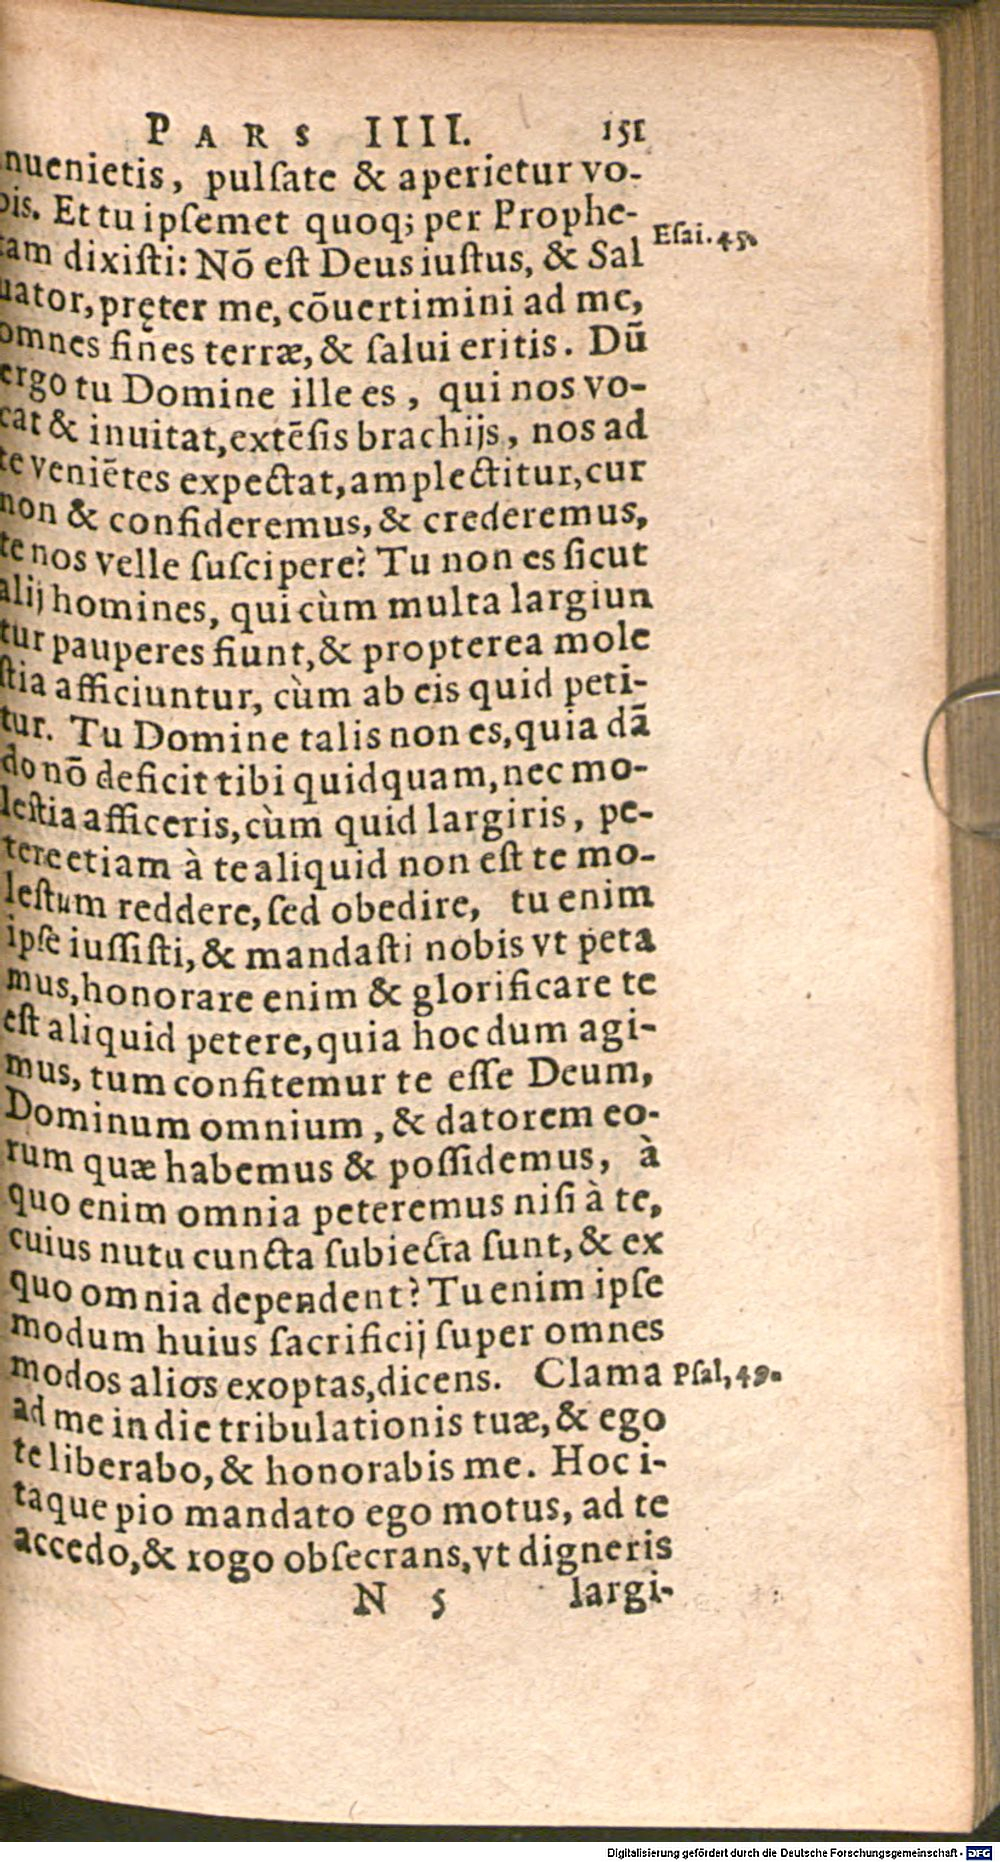 PARS IIII. 151
nuenietis, pulſate & aperietur vo-
bis. Et tu ipſemet quoq; per Prophe-
tam dixiſti: Nō eſt Deus iuſtus, & Sal
Eſai. 45.
uator, pręter me, cōuertimini ad me,
omnes fines terræ, & ſalui eritis. Dū
ergo tu Domine ille es, qui nos vo-
cat & inuitat, extēſis brachijs, nos ad
te veniētes expectat, amplectitur, cur
non & confideremus, & crederemus,
te nos velle ſuſcipere? Tu non es ſicut
alij homines, qui cùm multa largiun
tur pauperes fiunt, & propterea mole
ſtia afficiuntur, cùm ab eis quid peti-
tur. Tu Domine talis non es, quia dā
do nō deficit tibi quidquam, nec mo-
leſtia afficeris, cùm quid largiris, pe-
tere etiam à te aliquid non eſt te mo-
leſtum reddere, ſed obedire, tu enim
ipſe iuſſiſti, & mandaſti nobis vt peta
mus, honorare enim & glorificare te
eſt aliquid petere, quia hoc dum agi-
mus, tum confitemur te eſſe Deum,
Dominum omnium, & datorem eo-
rum quæ habemus & poſſidemus, à
quo enim omnia peteremus niſi à te,
cuius nutu cuncta ſubiecta ſunt, & ex
quo omnia dependent? Tu enim ipſe
modum huius ſacrificij ſuper omnes
modos alios exoptas, dicens. Clama
Pſal, 49.
ad me in die tribulationis tuæ, & ego
te liberabo, & honorabis me. Hoc i-
taque pio mandato ego motus, ad te
accedo, & rogo obſecrans, vt digneris
N 5 largi-
Digitalisierung gefördert durch die Deutsche Forschungsgemeinschaft - DFG